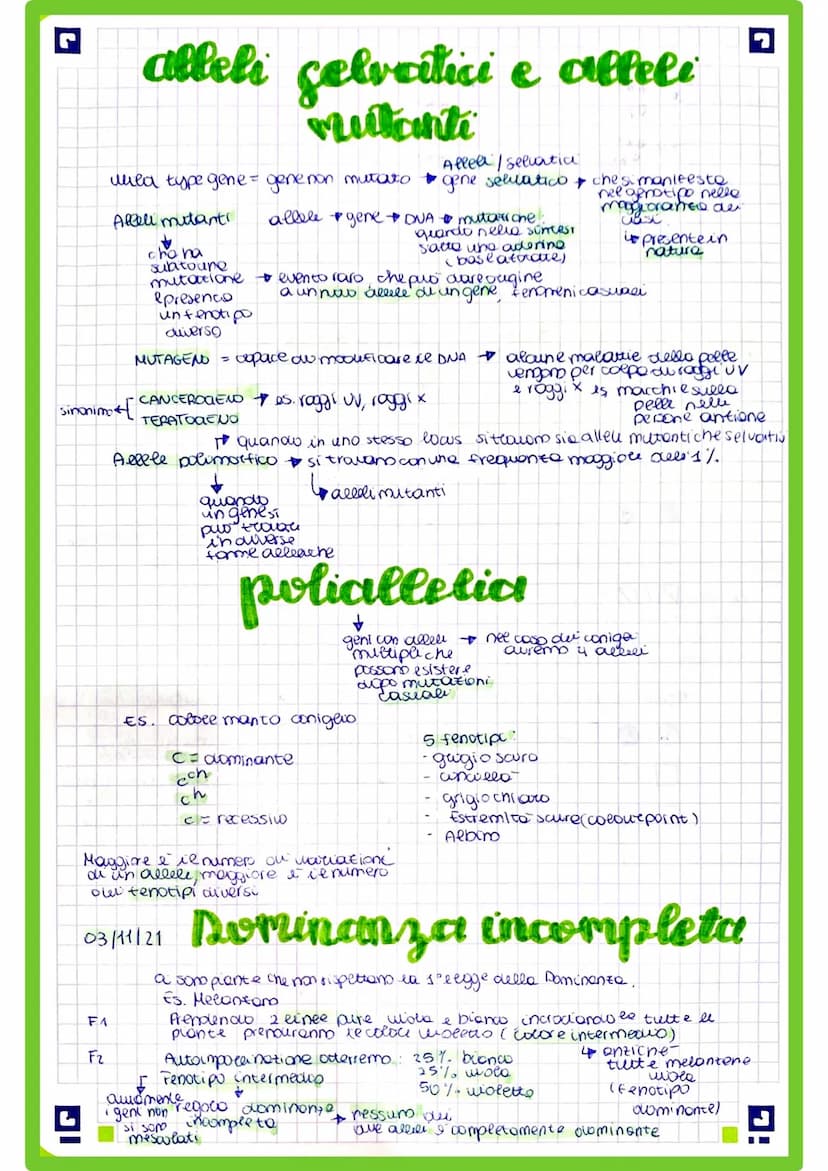 alleli selvatici e alleli
mutanti
Alleli / selvatici
wild type gene = gene non mutato → gene selvatico → che si manifesta
nel fenotipo nella
maggioranza dei
casi
↳ presente in
natura
Alleli mutanti
allele → gene → DNA → mutazione:
quando nella sintesi
salta una adenina
(base azotate)
che ha
subito una
mutazione
e presenta
un fenotipo
diverso
→ evento raro che può dare origine
a un nuovo allele di un gene, fenomeni casuali
MUTAGENO = capace di modificare il DNA → alcune malattie della pelle
vengono per colpa di raggi UV
e raggi x es. macchie sulla
pelle nelle
persone anziane
sinonimo
CANCEROGENO → es. raggi UV, raggi x
TERATOGENO
quando in uno stesso locus si trovano sia alleli mutanti che selvatici
Allele polimorfico → si trovano con una frequenza maggiore dell'1%.
↳ alleli mutanti
quando
un gene si
può trovare
in diverse
forme alleliche
poliallelia
geni con alleli
multipli che
possono esistere
dopo mutazioni
casuali
→ nel caso dei conigli
avremo 4 alleli
ES. colore manto coniglio
C = dominante
cch
ch
c = recessivo
5 fenotipi:
- grigio scuro
- cincillà
- grigio chiaro
- Estremità scure (colourpoint)
- Albino
Maggiore è il numero di variazioni
di un allele, maggiore è il numero
di fenotipi diversi
03/11/21
Dominanza incompleta
ci sono piante che non rispettano la 1° legge della Dominanza.
Es. Melanzana
F1
Prendendo 2 linee pure viola e bianco incrociandole tutte le
piante prenderanno il colore violetto (colore intermedio)
↳ anziché
tutte melanzane
viola
(fenotipo
dominante)
F2
Autoimpollinazione otterremo: 25% bianco
25% viola
50% violetto
Fenotipo intermedio
ovviamente
i geni non
si sono
mescolati
regola dominanza
incompleta
→ nessuno dei
due alleli è completamente dominante